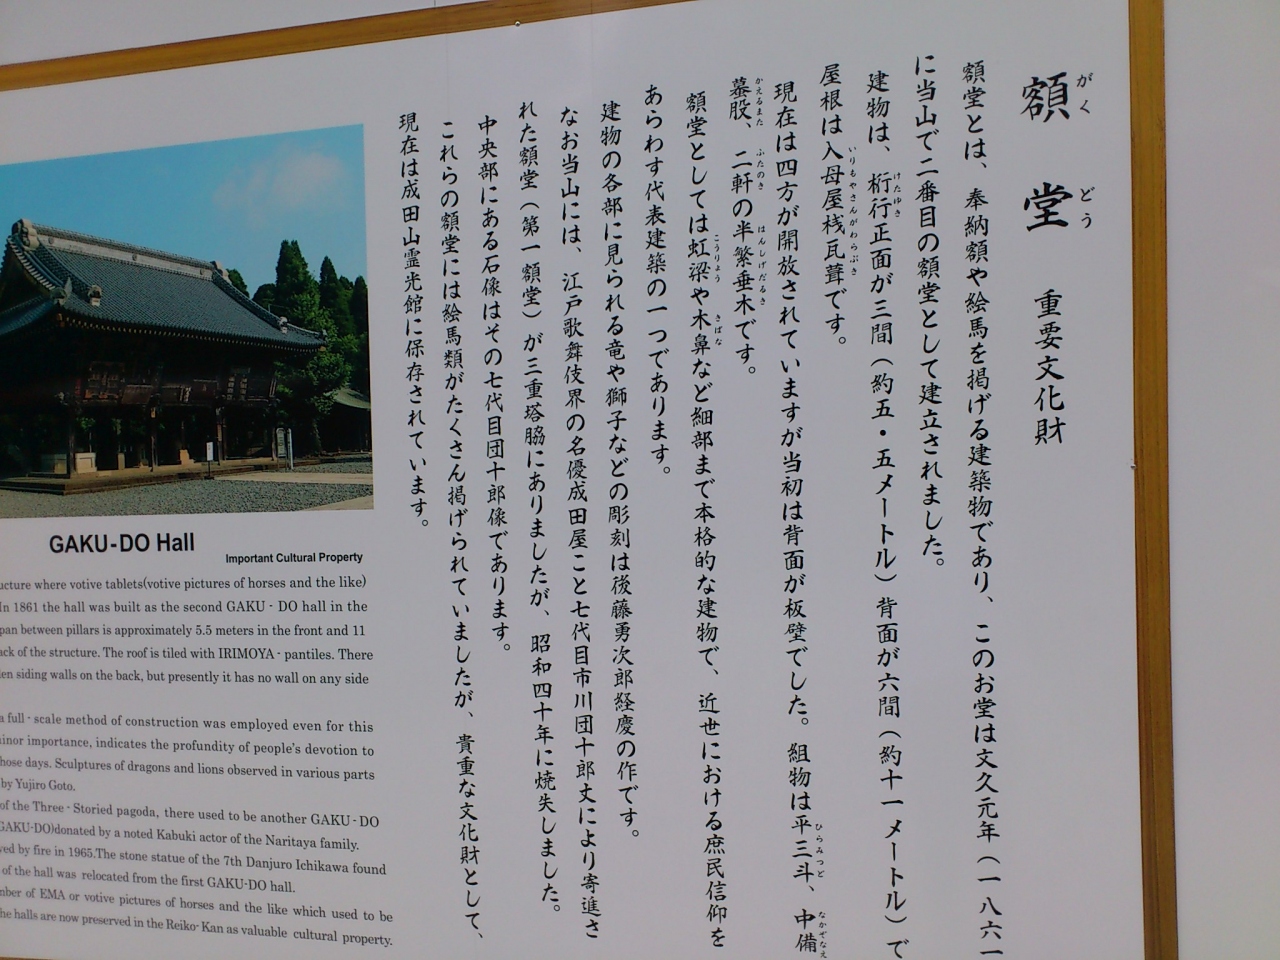 額堂 重要文化財
がく どう
額堂とは、奉納額や絵馬を掲げる建築物であり、このお堂は文久元年(一八六一
に当山で二番目の額堂として建立されました。
建物は、桁行正面が三間(約五・五メートル)背面が六間(約十一メートル)で
けたゆき
屋根は入母屋桟瓦葺です。
いりもやさんがわらぶき
現在は四方が開放されていますが当初は背面が板壁でした。組物は平三斗、中備
ひらみつど なかぞなえ
蟇股、二軒の半繁垂木です。
かえるまた ふたのき はんしげだるき
額堂としては虹梁や木鼻など細部まで本格的な建物で、近世における庶民信仰を
こうりょう きばな
あらわす代表建築の一つであります。
建物の各部に見られる竜や獅子などの彫刻は後藤勇次郎経慶の作です。
なお当山には、江戸歌舞伎界の名優成田屋こと七代目市川団十郎丈により寄進さ
れた額堂(第一額堂)が三重塔脇にありましたが、昭和四十年に焼失しました。
中央部にある石像はその七代目団十郎像であります。
これらの額堂には絵馬類がたくさん掲げられていましたが、貴重な文化財として、
現在は成田山霊光館に保存されています。
GAKU-DO Hall
Important Cultural Property
ucture where votive tablets(votive pictures of horses and the like)
In 1861 the hall was built as the second GAKU - DO hall in the
pan between pillars is approximately 5.5 meters in the front and 11
ack of the structure. The roof is tiled with IRIMOYA - pantiles. There
en siding walls on the back, but presently it has no wall on any side
a full - scale method of construction was employed even for this
inor importance, indicates the profundity of people's devotion to
hose days. Sculptures of dragons and lions observed in various parts
by Yujiro Goto.
of the Three - Storied pagoda, there used to be another GAKU - DO
GAKU-DO)donated by a noted Kabuki actor of the Naritaya family.
ved by fire in 1965.The stone statue of the 7th Danjuro Ichikawa found
of the hall was relocated from the first GAKU-DO hall.
nber of EMA or votive pictures of horses and the like which used to be
he halls are now preserved in the Reiko-Kan as valuable cultural property.